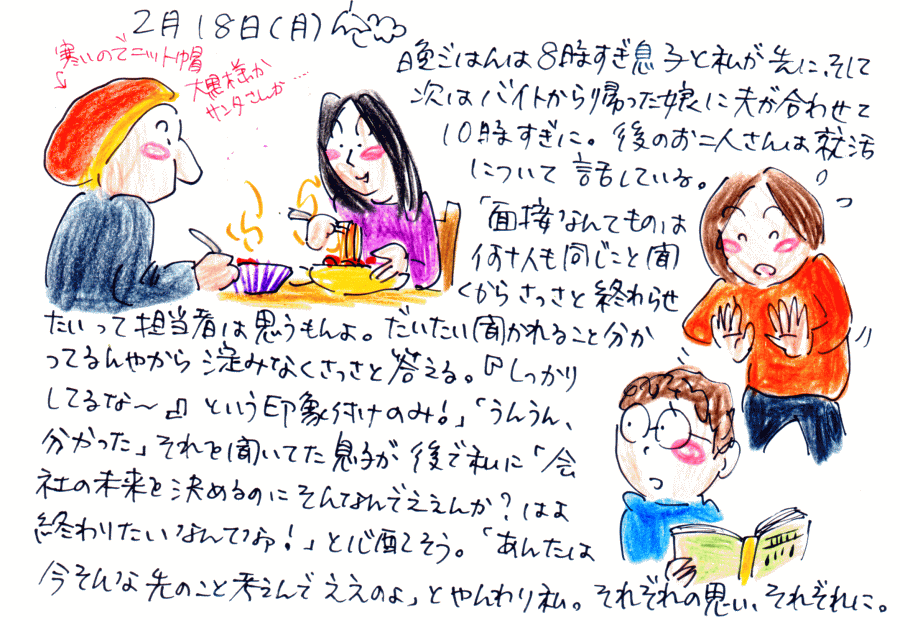 2月18日(月)
寒いのでニット帽
大黒様か
サンタさんか……
晩ごはんは8時すぎ息子と私が先に、そして
次はバイトから帰った娘に夫が合わせて
10時すぎに。後のお二人さんは就活
について話している。
「面接なんてものは
何十人も同じこと聞
くからさっさと終わらせ
たいって担当者は思うもんよ。だいたい聞かれること分か
ってるんやから淀みなくさっさと答える。『しっかり
してるな〜』という印象付けのみ!」「うんうん、
分かった」それを聞いてた息子が後で私に「会
社の未来を決めるのにそんなんでええんか?はよ
終わりたいなんてなァ!」と心配そう。「あんたは
今そんな先のこと考えんでええのよ」とやんわり私。それぞれの思い、それぞれに。